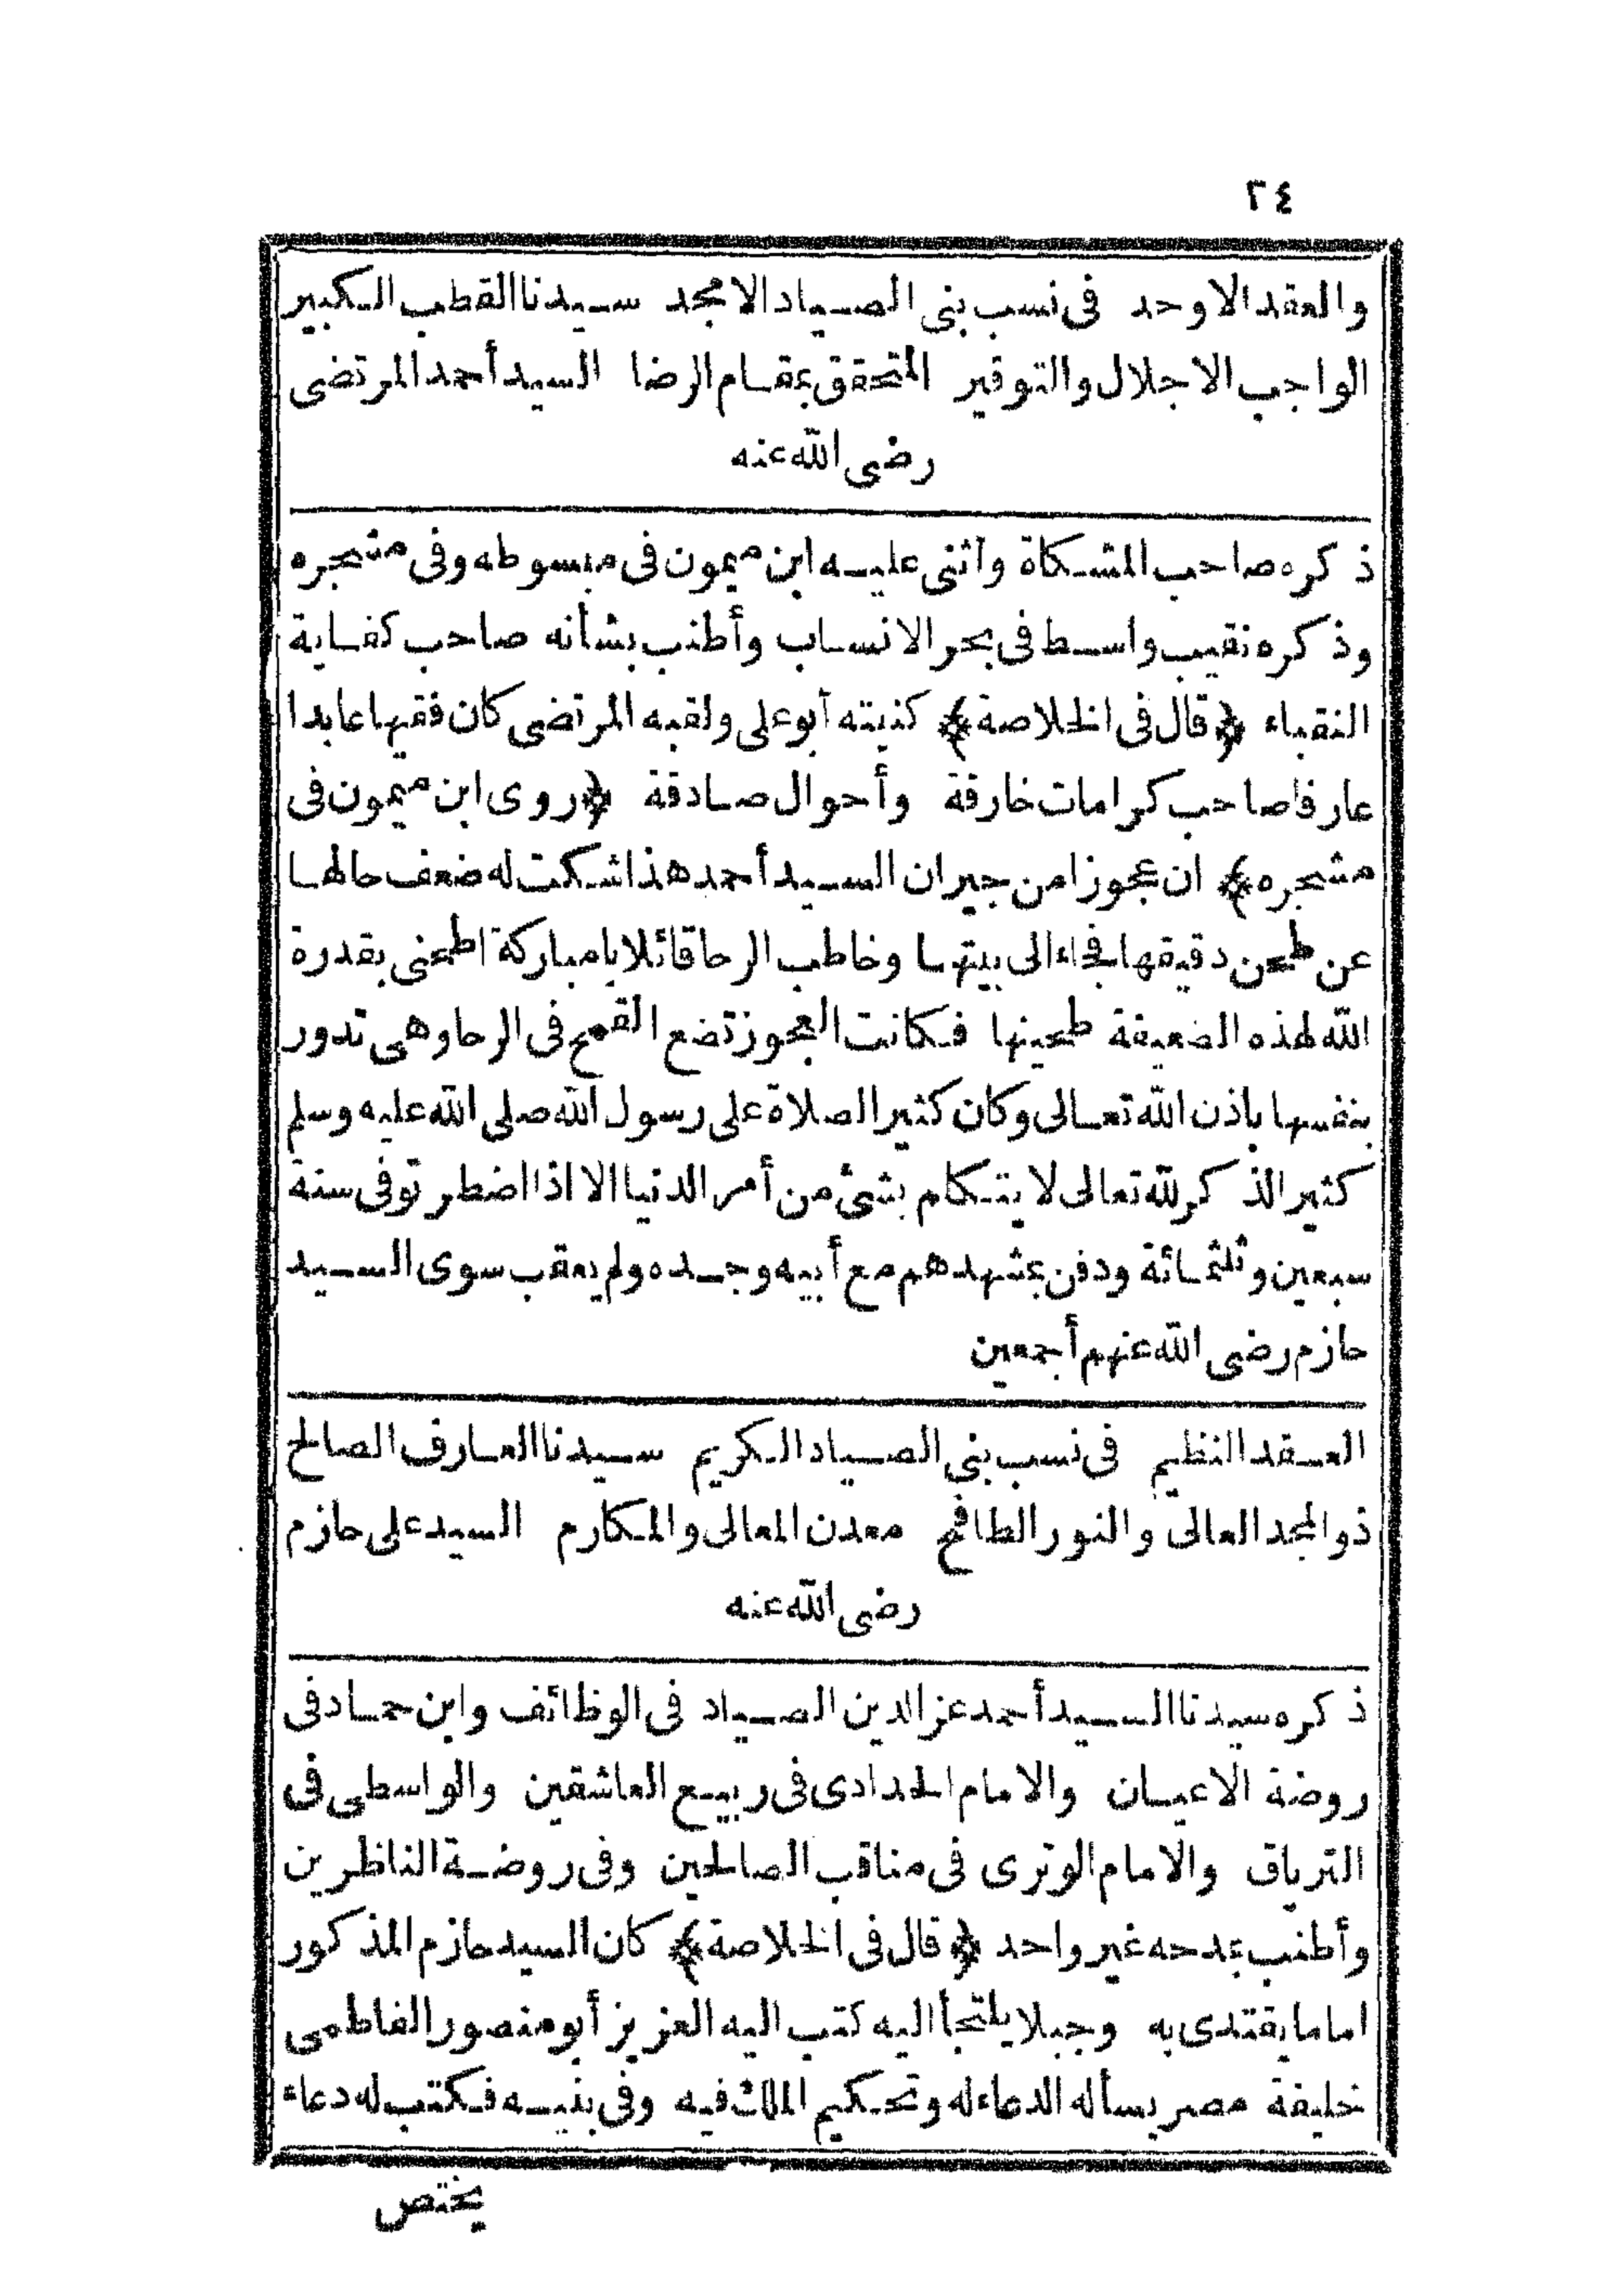 ٢٤
والعقد الاوحد فى نسب بنى الصياد الامجد سيدنا القطب الكبير
الواجب الاجلال والتوقير المتحقق بمقام الرضا السيد أحمد المرتضى
رضى الله عنه
ذكره صاحب المشكاة وأثنى عليه ابن ميمون فى مبسوطه وفى مشجره
وذكره نقيب واسط فى بحر الانساب وأطنب بشأنه صاحب كفاية
النقباء ﴿قال فى الخلاصة﴾ كنيته أبو على ولقبه المرتضى كان فقيها عابدا
عارفا صاحب كرامات خارقة وأحوال صادقة ﴿روى ابن ميمون فى
مشجره﴾ ان عجوزا من جيران السيد أحمد هذا شكت له ضعف حالها
عن طحن دقيقها فجاء الى بيتها وخاطب الرحا قائلا يا مباركة اطحنى بقدرة
الله لهذه الضعيفة طحينها فكانت العجوز تضع القمح فى الرحا وهى تدور
بنفسها باذن الله تعالى وكان كثير الصلاة على رسول الله صلى الله عليه وسلم
كثير الذكر لله تعالى لا يتكلم بشئ من أمر الدنيا الا اذا اضطر توفى سنة
سبعين وثلثمائة ودفن بمشهدهم مع أبيه وجده ولم يعقب سوى السيد
حازم رضى الله عنهم أجمعين
العقد النظيم فى نسب بنى الصياد الكريم سيدنا العارف الصالح
ذو المجد العالى والنور الطافح معدن المعالى والمكارم السيد على حازم
رضى الله عنه
ذكره سيدنا السيد أحمد عز الدين الصياد فى الوظائف وابن حماد فى
روضة الاعيان والامام الحدادى فى ربيع العاشقين والواسطى فى
الترياق والامام الوترى فى مناقب الصالحين وفى روضة الناظرين
وأطنب بمدحه غير واحد ﴿قال فى الخلاصة﴾ كان السيد حازم المذكور
اماما يقتدى به وجبلا يلتجأ اليه كتب اليه العزيز أبو منصور الفاطمى
خليفة مصر يسأله الدعاء له وتحكيم الملك فيه وفى بنيه فكتب له دعاء
يختص